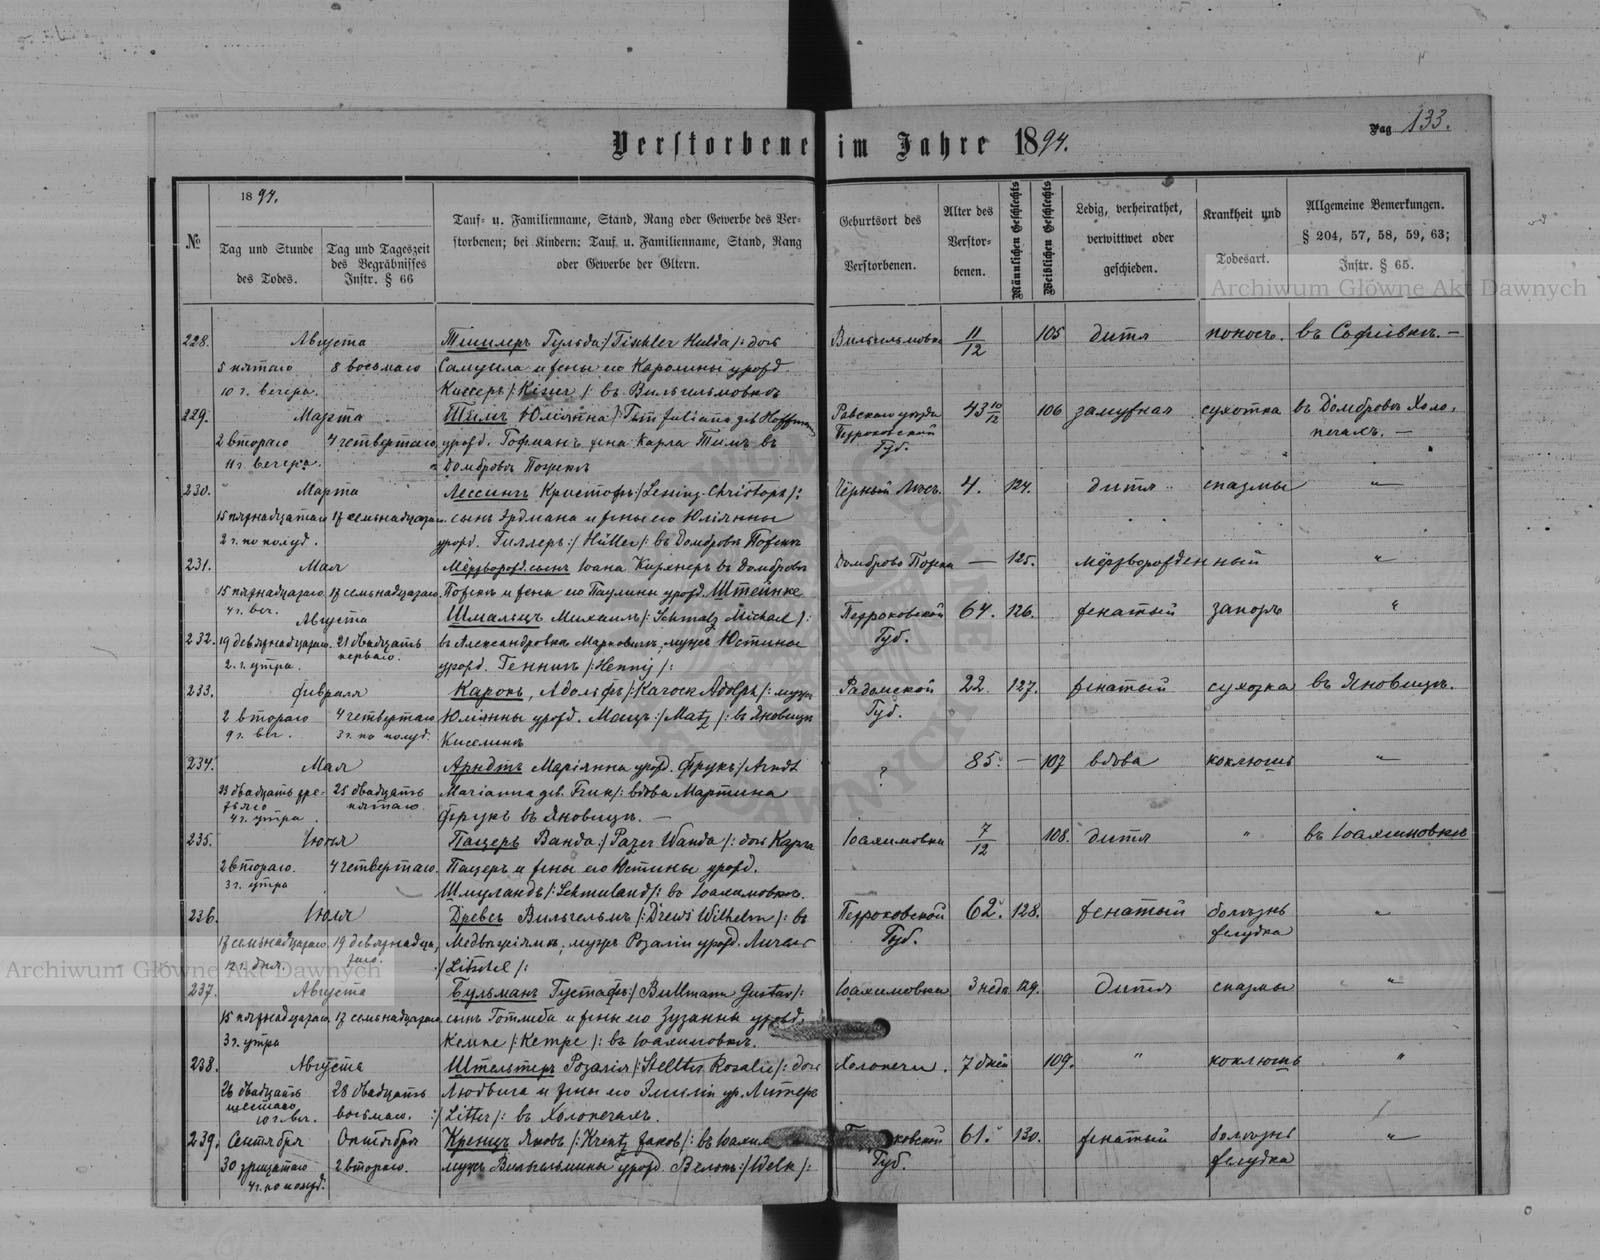 Pag 133.
Verstorbene im Jahre 1894.
№
1894.
Tag und Stunde
des Todes.
Tag und Tageszeit
des Begräbnisses
Instr. § 66
Tauf- u. Familienname, Stand, Rang oder Gewerbe des Ver-
storbenen; bei Kindern: Tauf u. Familienname, Stand, Rang
oder Gewerbe der Eltern.
Geburtsort des
Verstorbenen.
Alter des
Verstor-
benen.
Männlichen Geschlechts
Weiblichen Geschlechts
Ledig, verheirathet,
verwittwet oder
geschieden.
Krankheit und
Todesart.
Allgemeine Bemerkungen.
§ 204, 57, 58, 59, 63;
Instr. § 65.
Archiwum Główne Akt Dawnych
228. Августа Тишлеръ Гульда :/Tischler Hulda/: дочь Вильгельмовка 11/12 105 дитя поносъ. въ Софіевкѣ. —
5 пятаго 8 восьмаго Самуила и жены его Каролины урожд.
10 г. вечера. Киссеръ /: Kiser /: въ Вильгельмовкѣ
229. Марта Тимъ Юліянна /: Tim Juliana geb Hoffmann Равскаго уѣзда 43 10/12 106 замужная сухотка въ Домбровѣ Холо-
2 втораго 4 четвертаго урожд. Гофманъ жена Карла Тимъ въ Петроковской печахъ. —
11 г. вечера. Домбровѣ Губ.
230. Марта Лессингъ Христофъ :/ Lessing Christoph /: Чёрный Лѣсъ. 4. 124. дитя спазмы "
15 пятнадцатаго 17 семьнадцатаго сынъ Эрдмана и жены его Юліянны
2 г. по полуд. урожд. Гиллеръ :/ Hüller /: въ Домбровѣ
231. Мая Мёртворожд. сынъ Іоана Кирхнеръ въ Домбровѣ Домброво — 125. мёртворожденный "
15 пятнадцатаго 17 семьнадцатаго и жены его Паулины урожд. Штейнке
4 г. веч.
Августа Шмальцъ Михаилъ /: Schmalz Michael /: Петроковской 64. 126. женатый запоръ "
232. 19 девятнадцатаго 21 двадцать въ Александровкѣ Марковичъ, мужъ Юстины Губ.
перваго.
2. г. утра. урожд. Геннигъ /: Hennig /:
233. Февраля Карокъ, Адольфъ /: Karock Adolph /: мужъ Радомской 22. 127. женатый сухотка въ Яновицѣ.
2 втораго 4 четвертаго Юліянны урожд. Мацъ :/ Matz /: въ Яновицѣ Губ.
9 г. веч. 3 г. по полуд.
234. Мая Арндтъ Маріянна урожд. Фрукъ / Arndt ? 85. — 107 вдова коклюшъ "
23 двадцать тре- 25 двадцать Marianna geb. Fruk /: вдова Мартина
тьяго пятаго.
4 г. утра. Фрукъ въ Яновицѣ. —
235. Іюня Пацеръ Ванда :/ Pazer Wanda /: дочь Карла Іоахимовка 7/12 108. дитя " въ Іоахимовкѣ
2 втораго. 4 четвертаго. Пацеръ и жены его Юстины урожд.
3 г. утра Шмуландъ /: Schmuland /: въ Іоахимовкѣ.
236. Іюля Древсъ Вильгельмъ /: Drews Wilhelm /: въ Петроковской 62. 128. женатый болѣзнь "
17 семьнадцатаго 19 девятнадца- мужъ Розаліи урожд. Губ. желудка
таго.
12 г. дня. :/ Litschel /:
Archiwum Główne Akt Dawnych
237. Августа Бульманъ Густафъ :/ Bullmann Gustav /: Іоахимовка 3 недѣ. 129. дитя спазмы "
15 пятнадцатаго 17 семьнадцатаго сынъ Готлиба и жены его Зузанны урожд.
3 г. утра Кемпе /: Kempe /: въ Іоахимовкѣ.
238. Августа Штельтеръ Розалія /: Stellter Rosalie /: дочь Холопечи. 7 дней 109. " коклюшъ "
26 двадцать 28 двадцать Людвига и жены его Эмиліи ур. Литтеръ
шестаго восьмаго. :/ Litter /: въ Холопечахъ.
10 г. веч.
239. Сентября Октября Кренцъ Яковъ /: Krentz Jakob /: въ Іоахим ковской 61. 130. женатый болѣзнь "
30 тридцатаго 2 втораго. мужъ Вильгельмины урожд. Вельк :/ Welk /: Губ. желудка
4 г. по полуд.